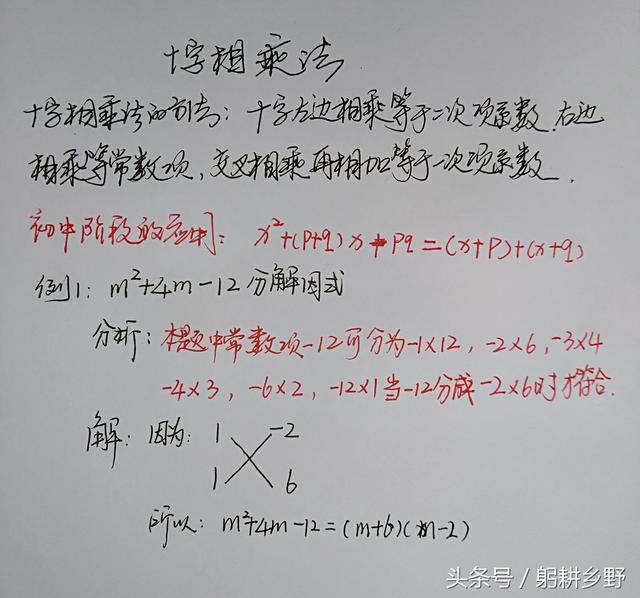 十字相乘法
十字相乘法的方法：十字左边相乘等于二次项系数.右边
相乘等常数项，交叉相乘再相加等于一次项系数.
初中阶段的应用：x²+(p+q)x+pq=(x+p)+(x+q)
例1：m²+4m-12分解因式
分析：本题中常数项-12可分为-1×12，-2×6，-3×4
-4×3，-6×2，-12×1当-12分成-2×6时才符合.
解：因为：1 -2
1 6
所以：m²+4m-12=(m+6)(m-2)
头条号／躬耕乡野